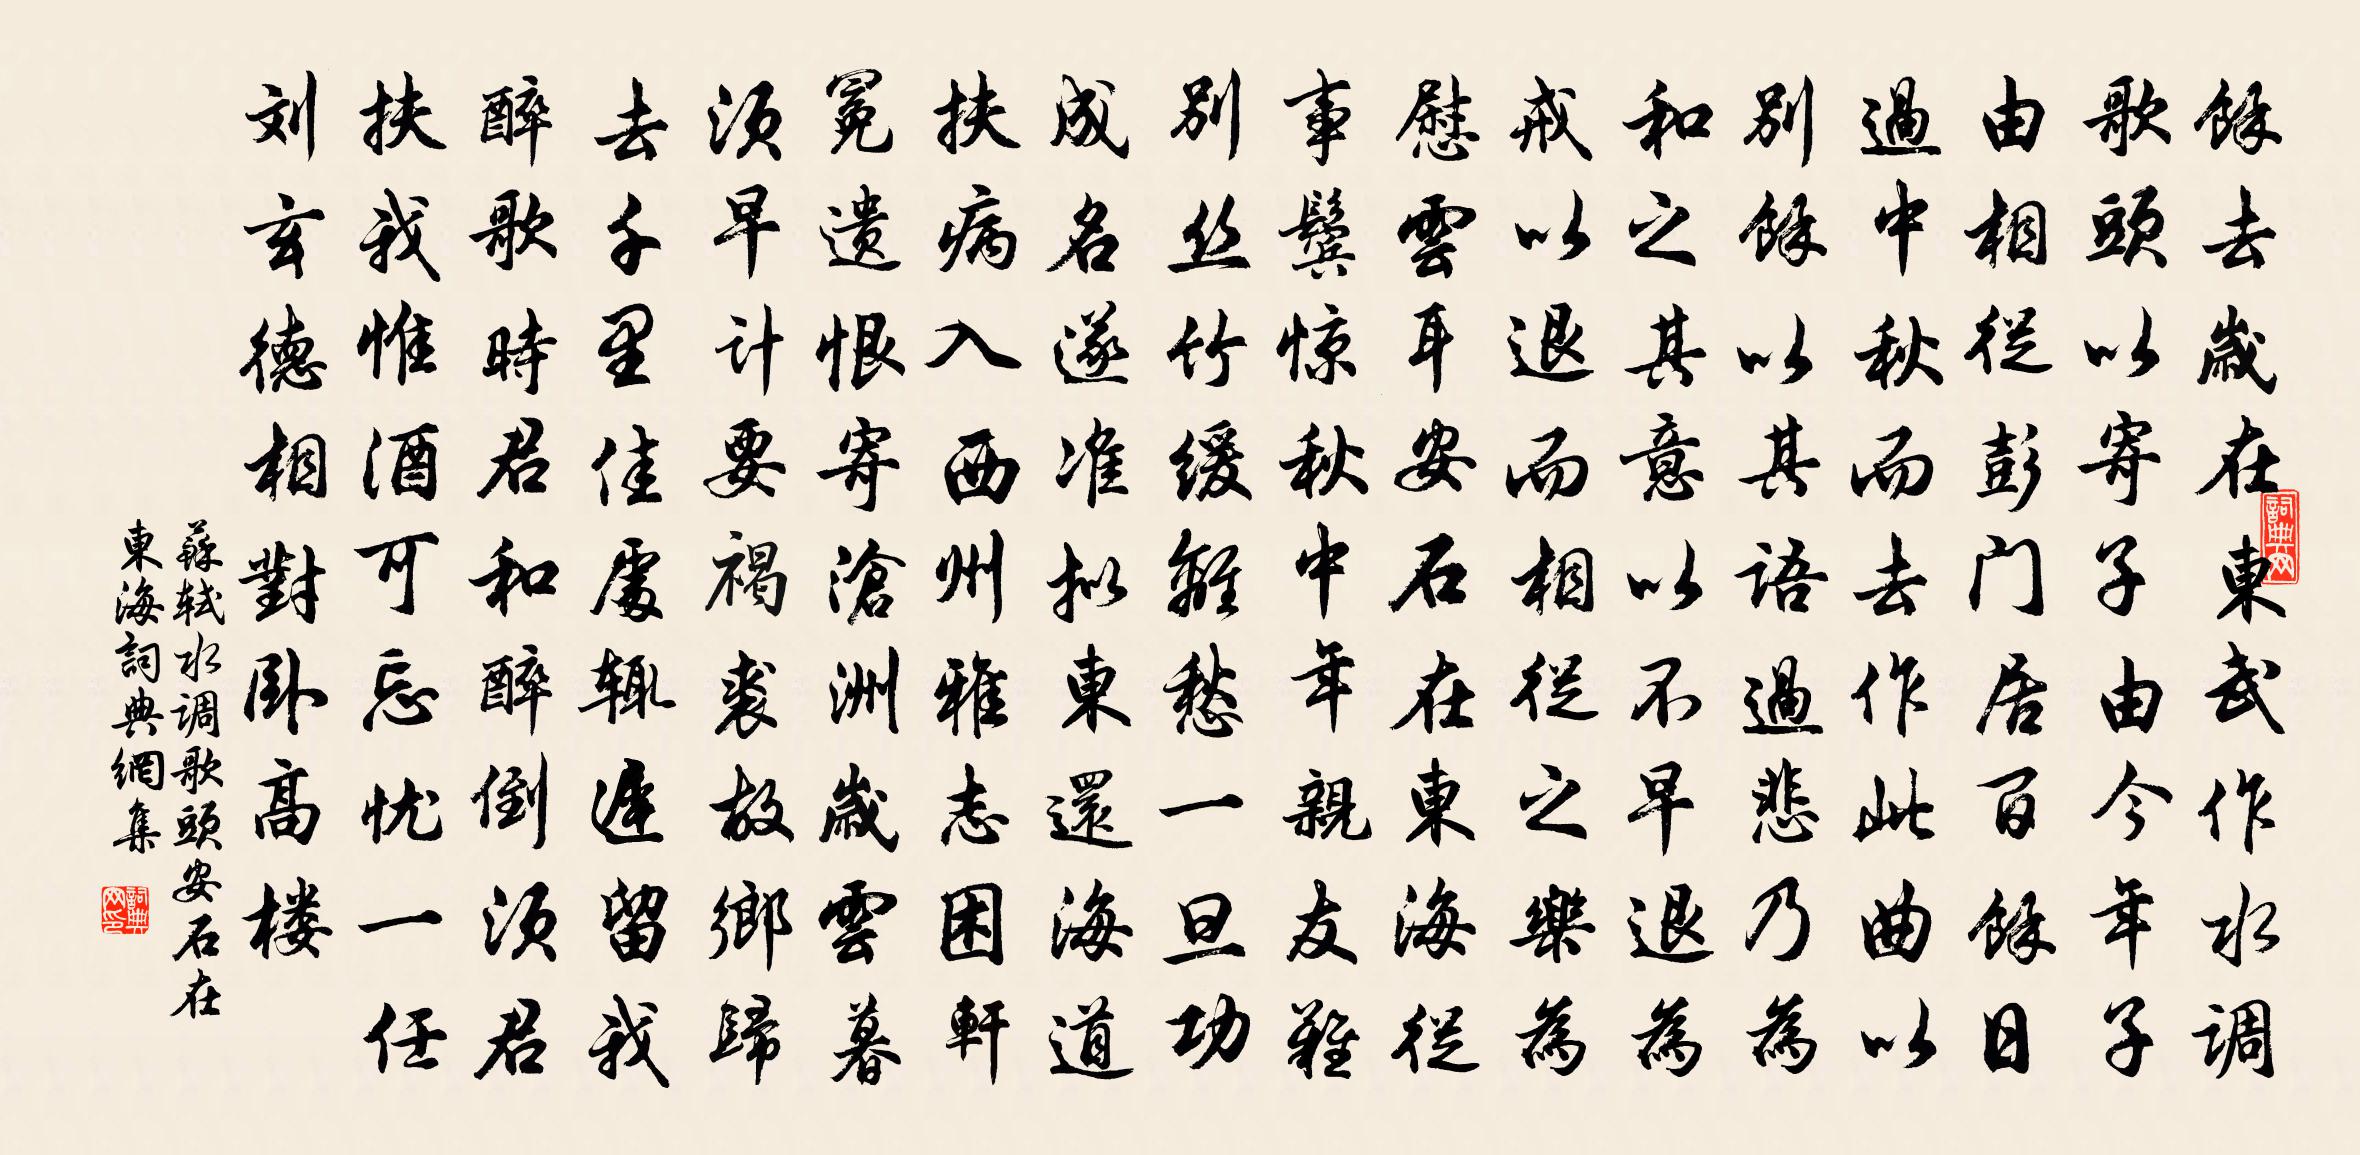 餘去歲在東武作水調
歌頭以寄子由今年子
由相從彭门居百餘日
過中秋而去作此曲以
别餘以其語過悲乃為
和之其意以不早退為
戒以退而相從之樂為
慰雲耳安石在東海從
事鬓惊秋中年親友難
别丝竹缓離愁一旦功
成名遂准拟東還海道
扶病入西州雅志困軒
冕遗恨寄滄洲歲雲暮
须早计要褐裘故鄉歸
去千里佳處辄遲留我
醉歌時君和醉倒须君
扶我惟酒可忘忧一任
刘玄德相對卧高楼
蘇轼水调歌頭安石在
東海詞典網集
詞典网
詞典网印